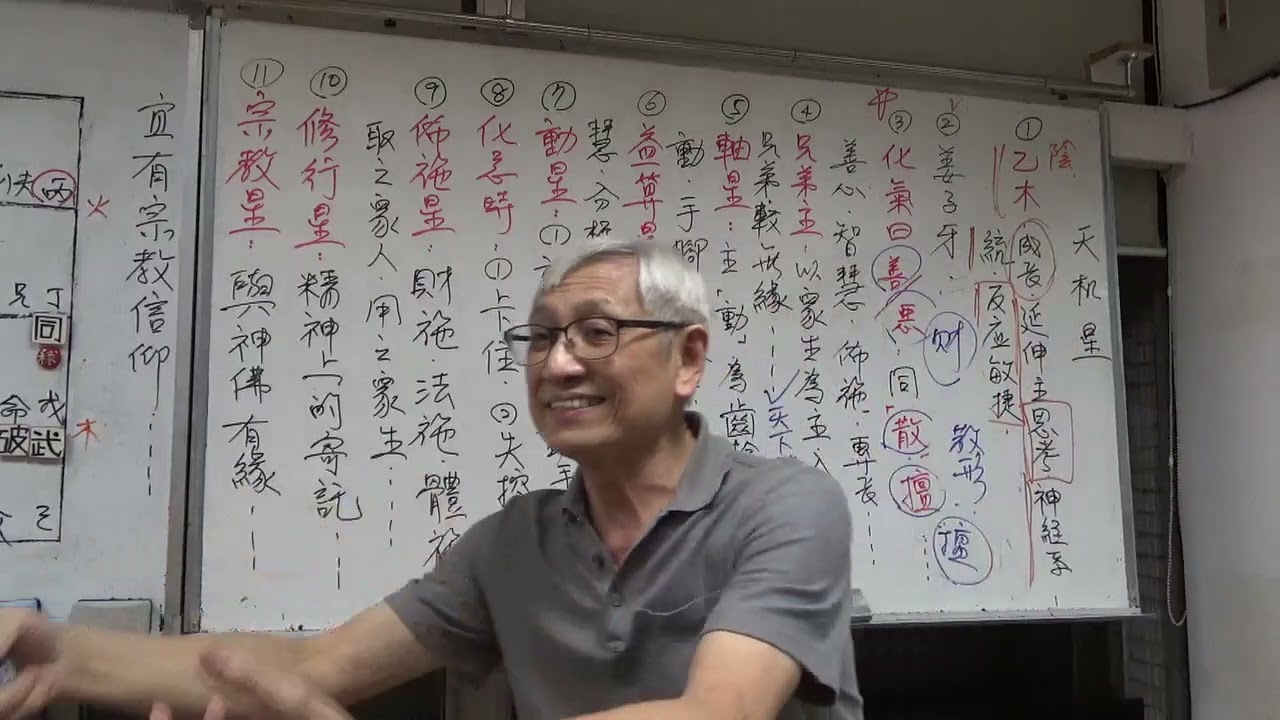 天机星
陰
①乙木 成長 延伸主思考 神経系
統 反应敏捷
②姜子牙. 财 散形. 擅
中
③化氣曰善 惡.同散 擅
善心.智慧.佈施.專長
④兄弟主:以眾生為主.人
兄弟較無緣 天下
⑤軸星:主.動.為齒輪
動.手腳
⑥益算星
慧.分析
⑦動星:①
⑧化忌時:①卡住.②失控
⑨佈施星:財施.法施.體施
取之眾人.用之眾生
⑩修行星:精神上的寄託
⑪宗教星:與神佛有緣
宜有宗教信仰
丙
火
兄丁
同
祿
命戊
木
破武
己